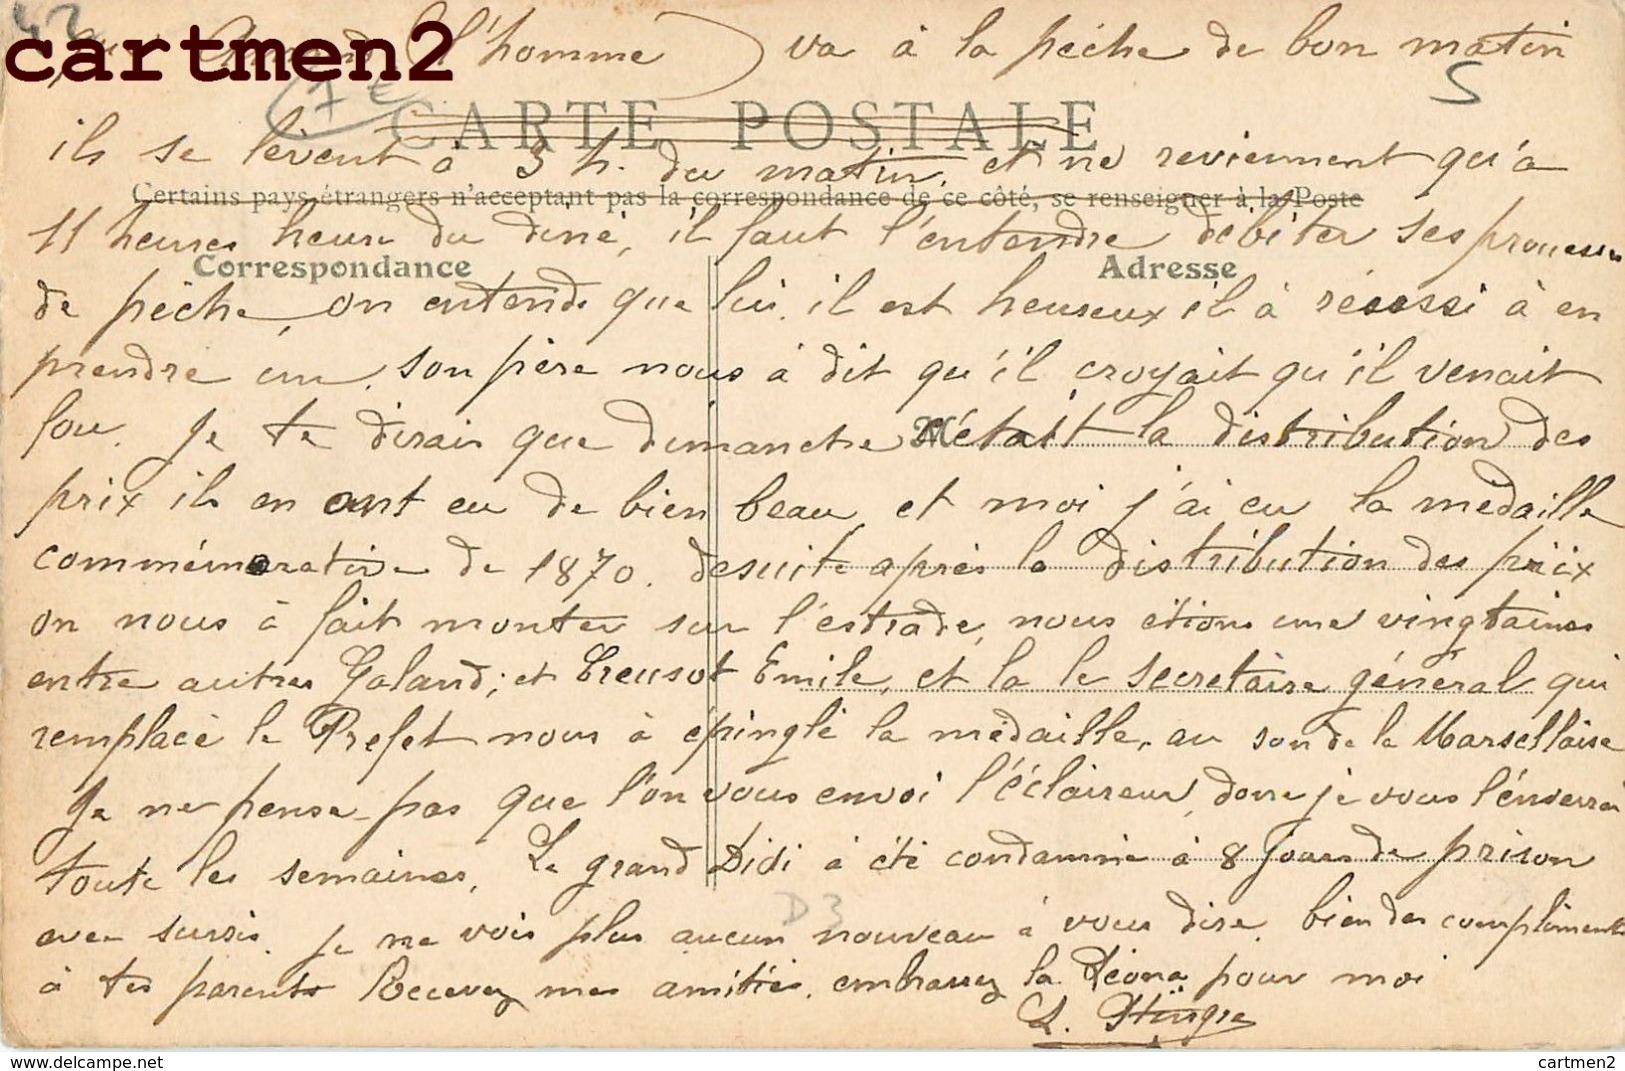 l'homme va à la pêche de bon matin
cartmen2
S
7 €
CARTE POSTALE
ils se lèvent à 3 h. du matin, et ne reviennent qu'a
Certains pays étrangers n'acceptant pas la correspondance de ce côté, se renseigner à la Poste
11 heures heure du diné, il faut l'entendre débiter ses prouesses
Correspondance
Adresse
de pêche, on entends que lui. il est heureux il à réussi à en
prendre un, son père nous à dit qu'il croyait qu'il venait
fou. Je te dirais que dimanche c'était la distribution des
prix ils en ont eu de bien beau, et moi j'ai eu la medaille
commémorative de 1870. desuite après la distribution des prix
on nous à fait monter sur l'estrade, nous étions une vingtaines
entre autres Galand; et Creusot Emile, et la le secretaire général qui
remplacé le Prefet nous à épinglé la médaille, au son de la Marsellaise
Je ne pense pas que l'on vous envoi l'éclaireur, donc je vous l'enverrai
toute les semaines, Le grand Didi à été condamné à 8 jours de prison
avec sursis. je ne vois plus aucun nouveau à vous dire. bien des compliments
D3
à tes parents Recevez mes amitiés. embrassez la Léona pour moi
L.
delcampe.net
cartmen2